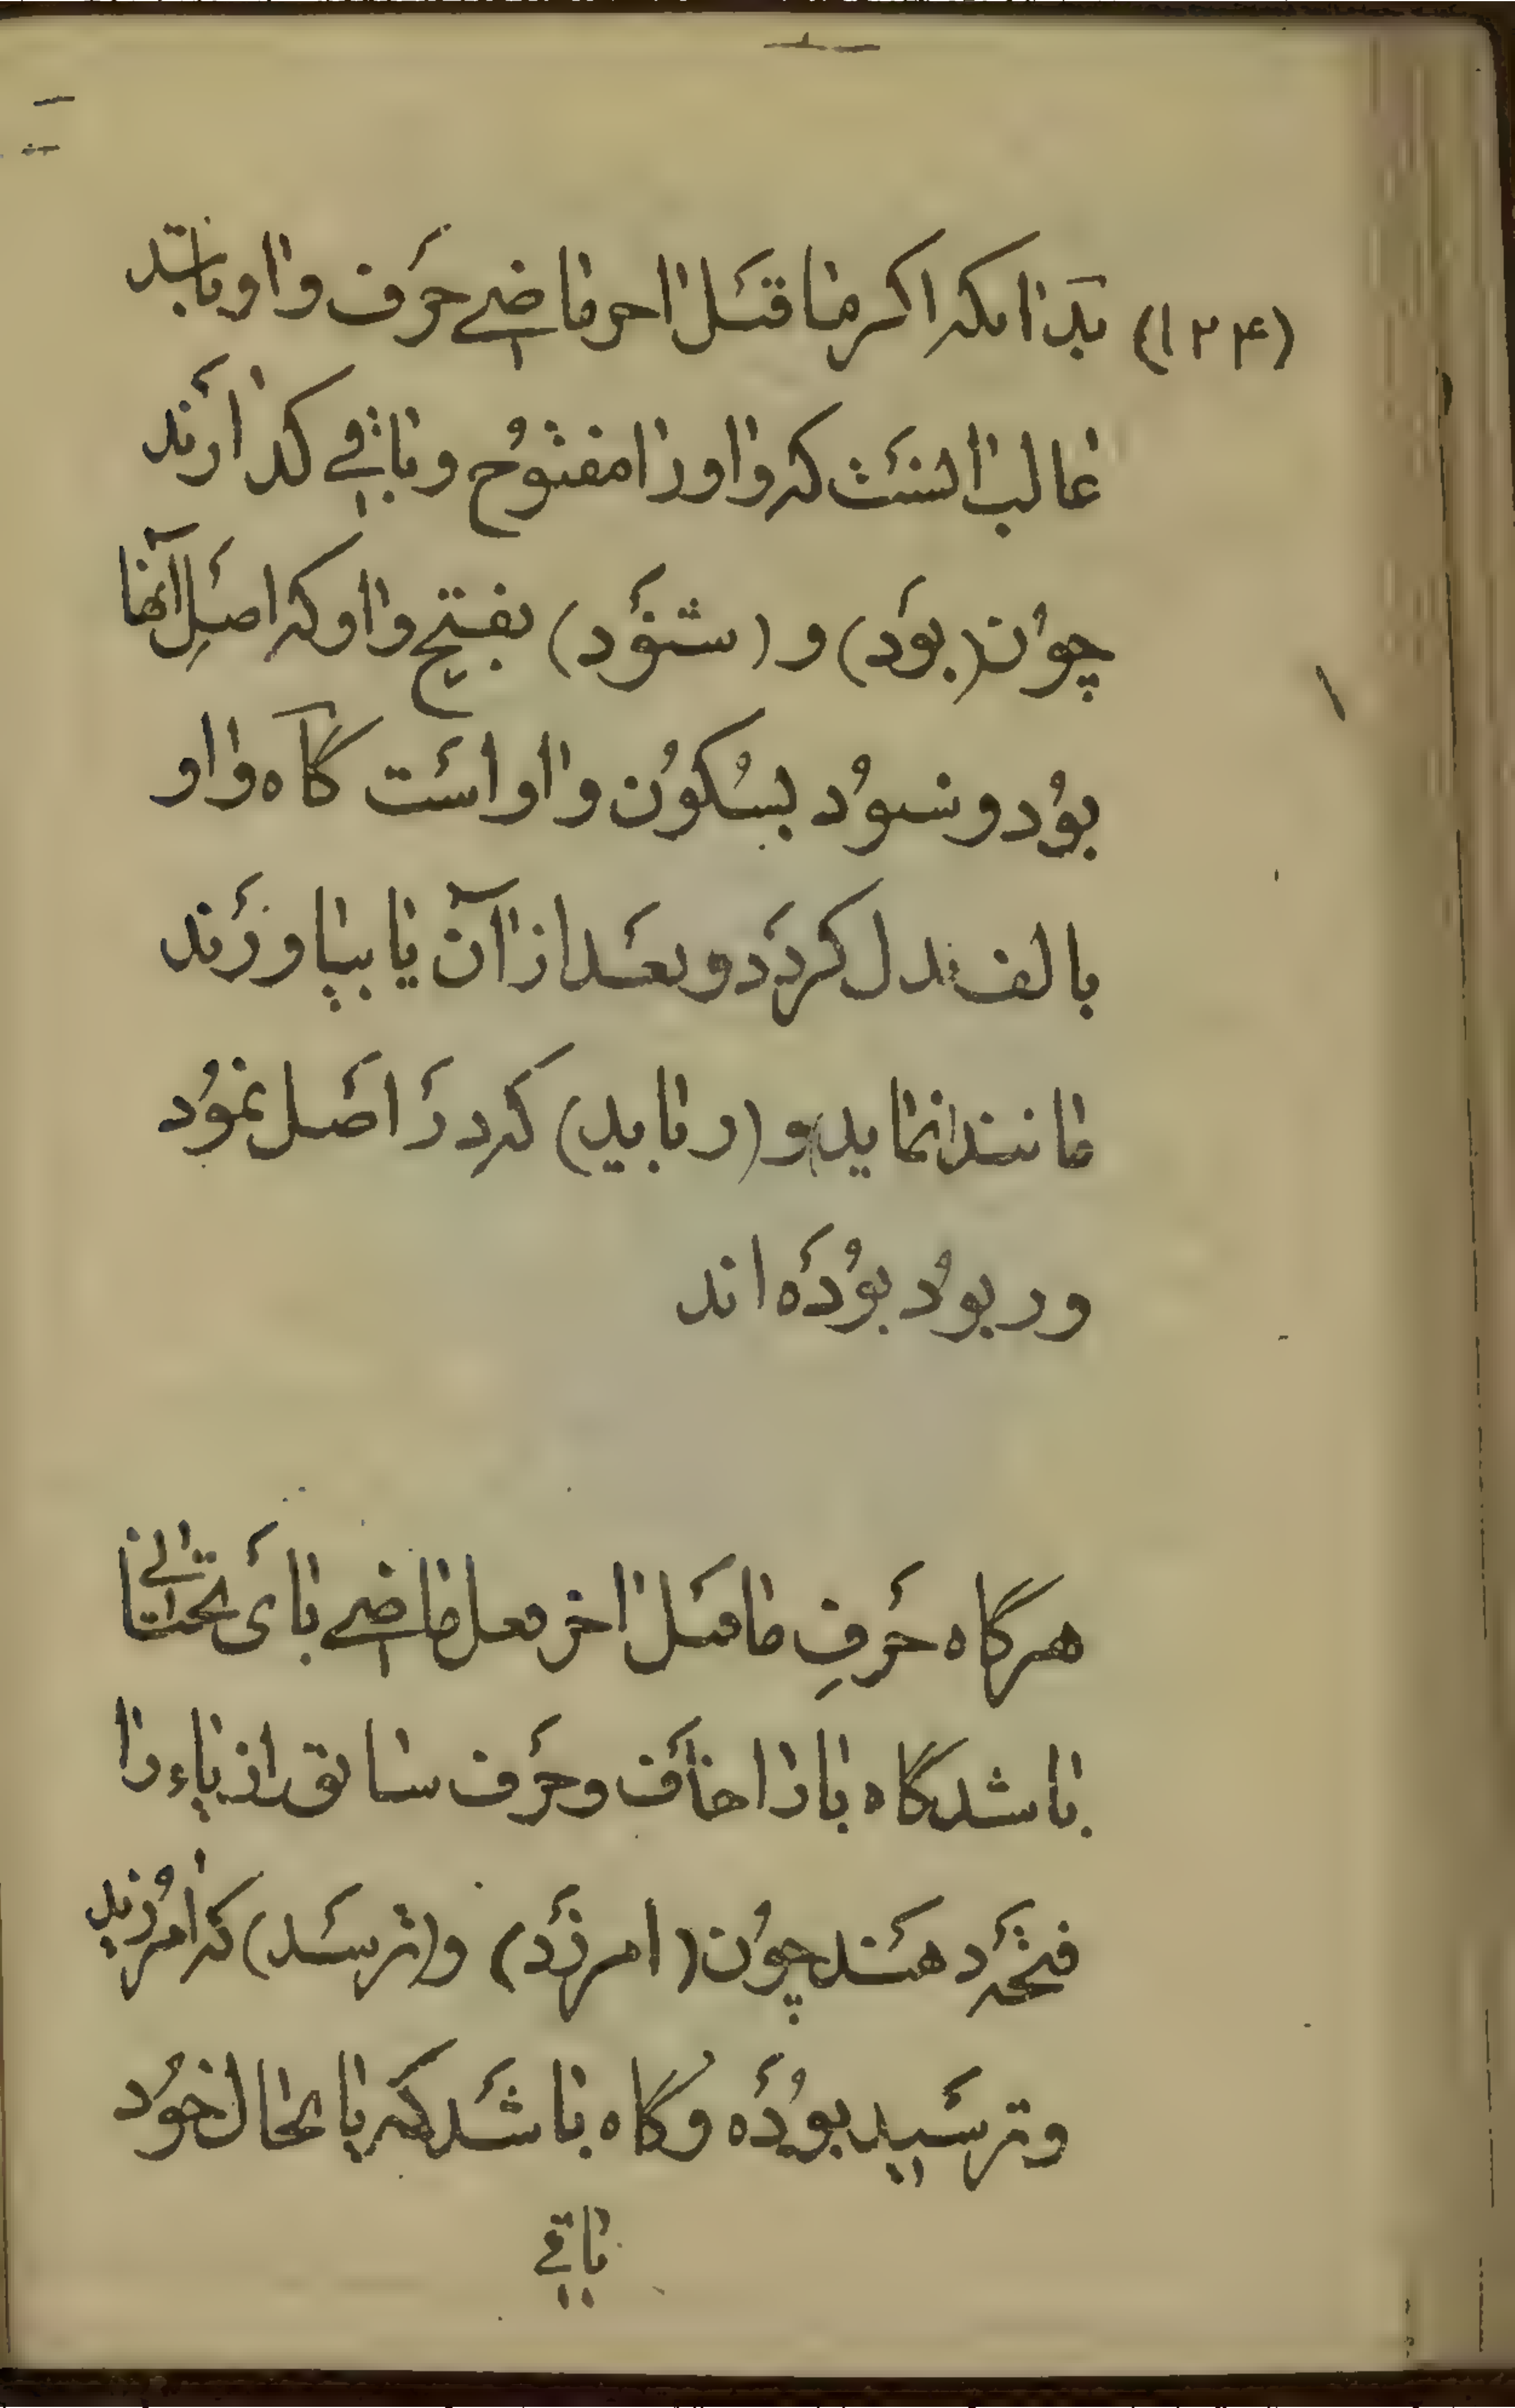 (۱۲۴) بدانکه اکر ما قبل اخر ماضی حرف واو باشد
غالب انست که واو را مفتوح و باقی کذارند
چون (بود) و (شنود) بفتح واو که اصل آنها
بود و شنود بسکون واو است گاه واو
بالف بدل کردد و بعد از آن یا بیاورند
مانند (نماید) و (رباید) که در اصل نمود
و ربود بوده اند
هرگاه حرف ماقبل اخر فعل ماضی یای تحتانی
باشد گاه یا را حذف و حرف سابق از یاء را
فتحه دهند چون (امرزد) و (ترسد) که امرزید
و ترسید بوده و گاه باشد که یا بحال خود
باقی